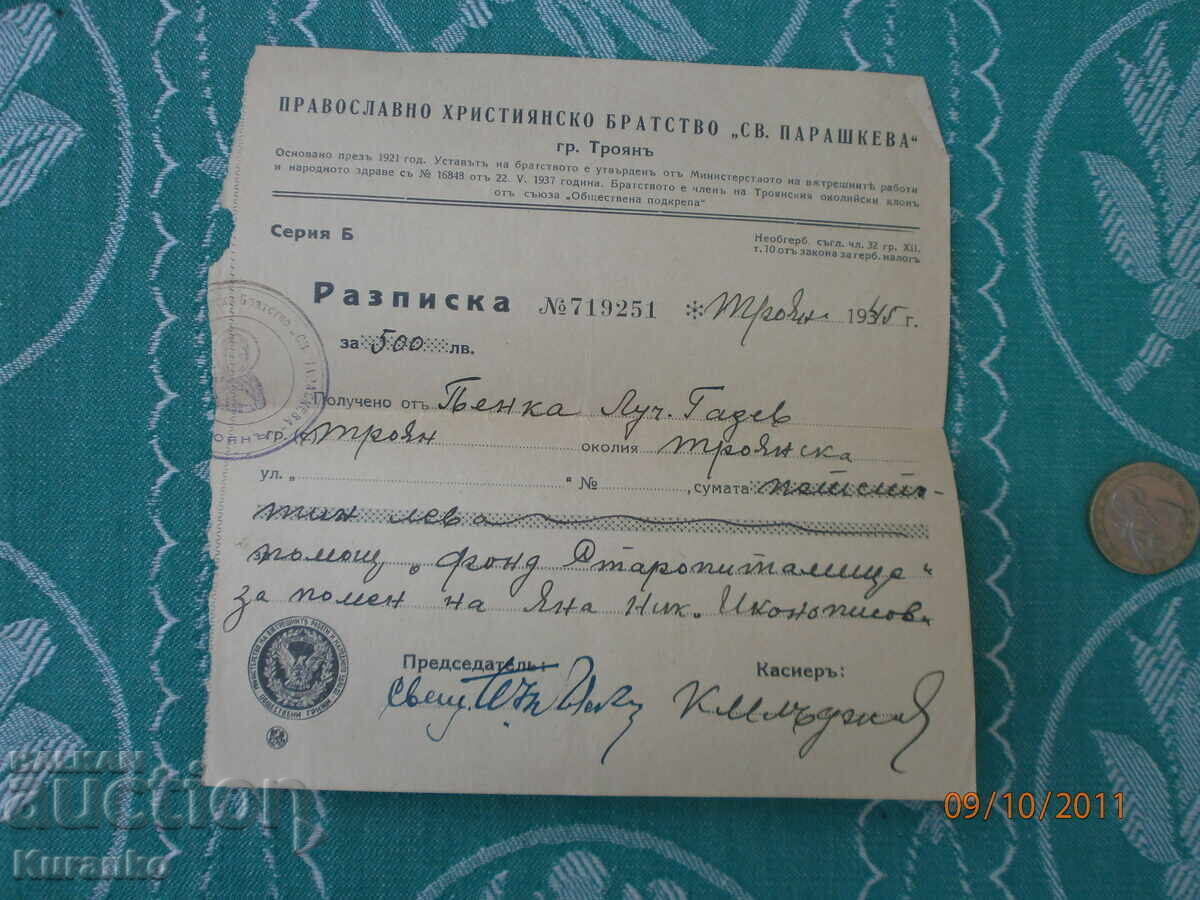 ПРАВОСЛАВНО ХРИСТИЯНСКО БРАТСТВО „СВ. ПАРАШКЕВА“
гр. Троянъ
Основано презъ 1921 год. Уставътъ на братството е утвърденъ отъ Министерството на вѫтрешнитѣ работи
и народното здраве съ № 16848 отъ 22. V. 1937 година. Братството е членъ на Троянския околийски клонъ
отъ съюза „Обществена подкрепа“
Серия Б
Необгерб. съгл. чл. 32 гр. XII,
т. 10 отъ закона за герб. налогъ
Разписка № 719251 * Троян 1945 г.
за 500 лв.
Получено отъ Пенка Луч. Гадев
гр. Троян околия Троянска
ул. „ “ № , сумата петсто-
тин лева
помощ „Фонд Старопиталище“
за помен на Яна Ник. Иконописов
Председатель: Касиеръ:
Свещ.
БАЛКАН
auction
Kuranko
09/10/2011